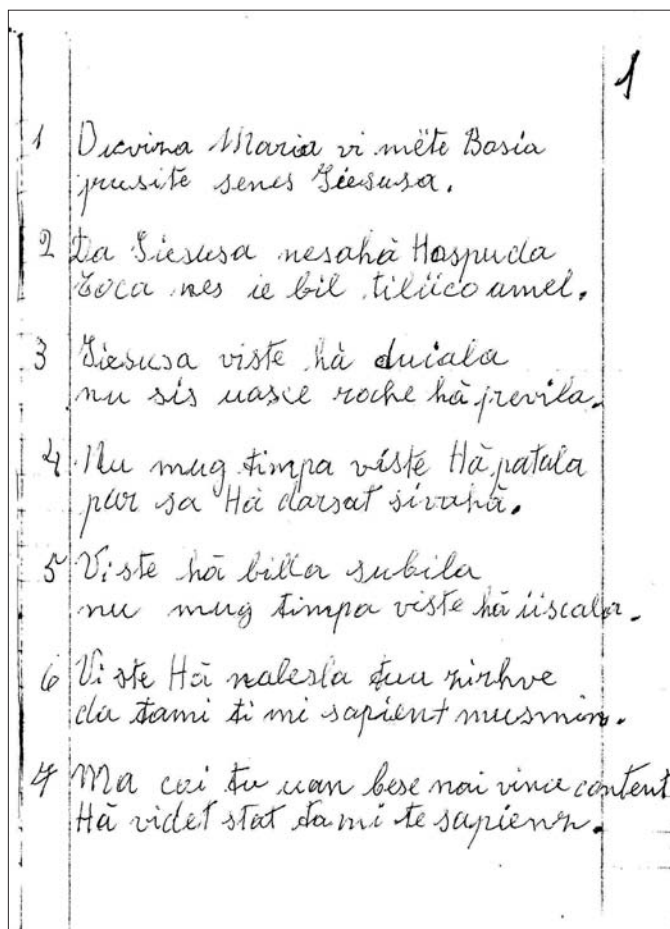 1
1 Dicvina Maria vi mëte Basia
prusite senes Giesusa.
2 Da Giesusa nesahà Haspuda
Zoca nes ie bil tilüco amel.
3 Giesusa viste hà duiala
nu sis uasce roche hà previla.
4 Nu mug timpa viste Hà patala
par sa Hà darsat sivahà.
5 Viste hà billa subila
nu mug timpa viste hà üscala.
6 Viste Hà nalesla tuu zirhve
da tami ti mi sapient musmin.
7 Ma coi tu uan bese nai vince content
Hà videt stat tami te sapienn.